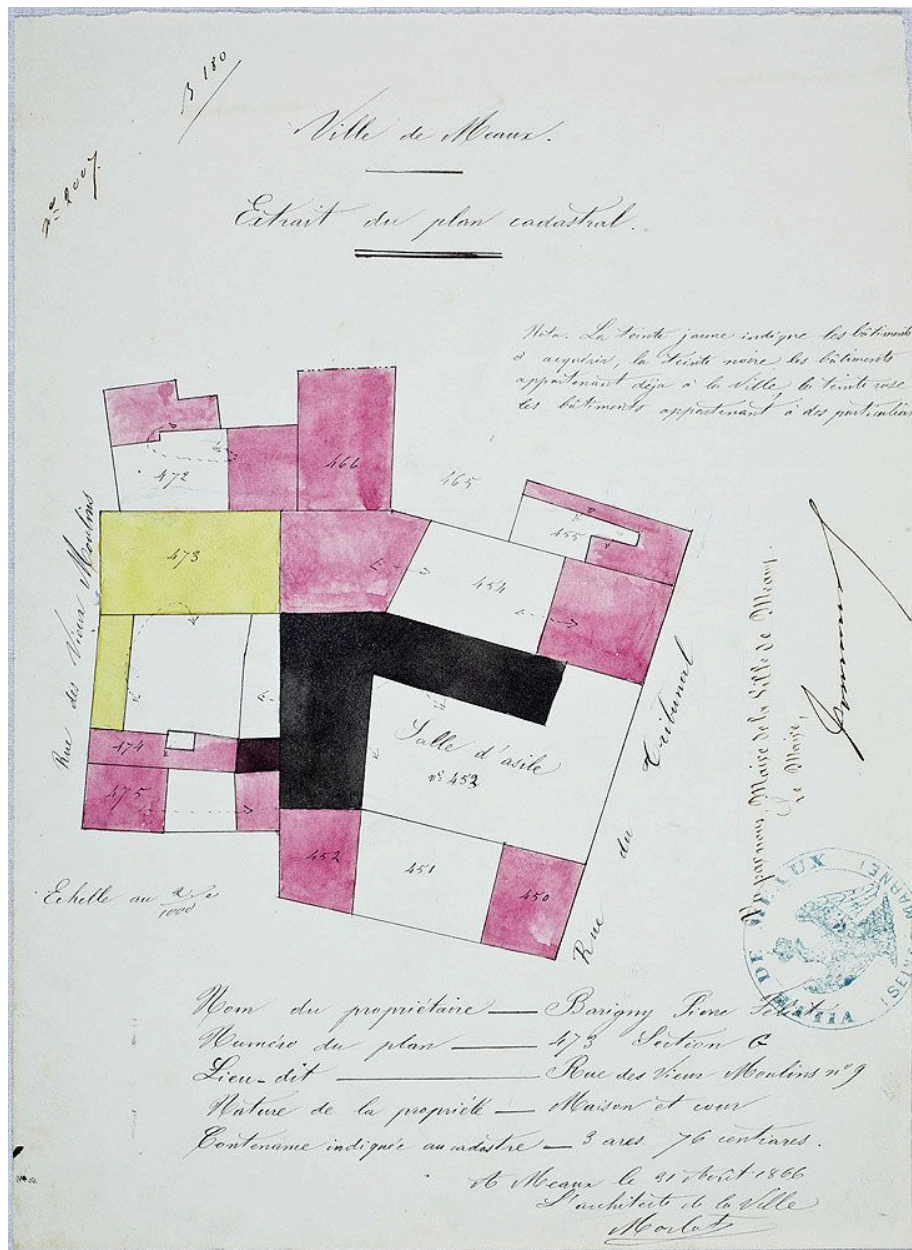 B 180
n° 2007
Ville de Meaux.
Extrait du plan cadastral.
Nota. La teinte jaune indique les bâtiments
à acquérir, la teinte noire les bâtiments
appartenant déjà à la Ville, la teinte rose
les bâtiments appartenant à des particuliers
466
465
472
455
473
454
Rue des Vieux Moulins
Salle d'asile
n° 452
474
475
452
451
450
Rue du Tribunal
Vu par nous, Maire de la Ville de Meaux,
Le Maire,
VILLE DE MEAUX
MARNE
Echelle au 2/1000
Nom du propriétaire — Barigny Pierre Félicité
Numéro du plan — 473 Section G
Lieu-dit — Rue des Vieux Moulins n° 9
Nature de la propriété — Maison et cour
Contenance indiquée au cadastre — 3 ares 76 centiares.
A Meaux le 31 Août 1866
L'architecte de la Ville